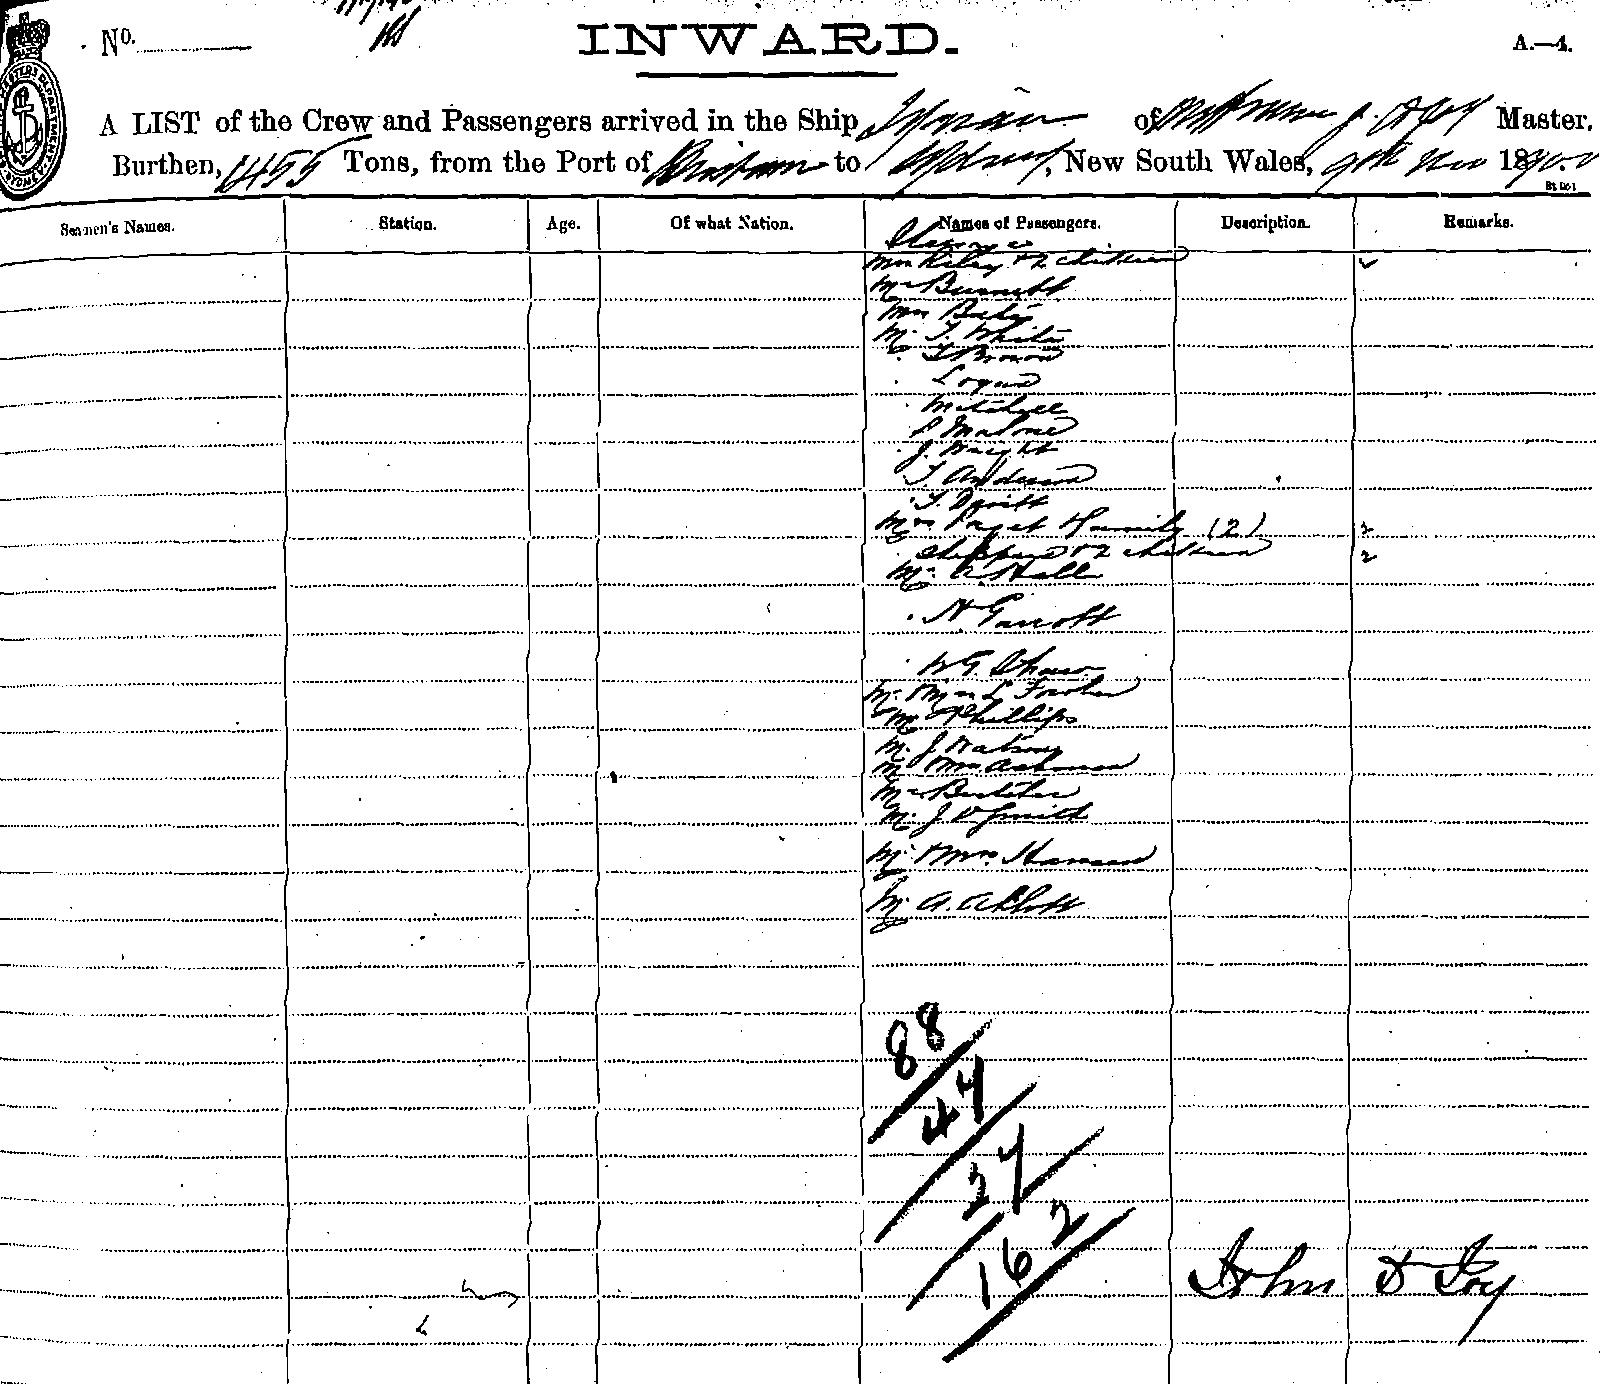 No.
INWARD.
A.—4.
A LIST of the Crew and Passengers arrived in the Ship of Master,
Burthen, 1455 Tons, from the Port of Brisbane to Sydney, New South Wales, 9th Nov 1900
Seamen's Names. Station. Age. Of what Nation. Names of Passengers. Description. Remarks.
Steerage
Mrs Riley & 2 children
Mr Burnett
Mrs
Mr T. White
T Brown
Logan
Mitchell
P Malone
J. Wright
T Anderson
T.
Mrs Paget & family (2) 2
Sheppard & 2 children 2
Mr A. Hall
H Garrott
W G. Shaw
Mr & Mrs L Fowler
Mr Phillips
Mr J. Watson
Mr & Mrs
Mr
Mr J V Smith
Mr & Mrs Hansen
Mr A. Abbott
88
47
27
162
John F Foy